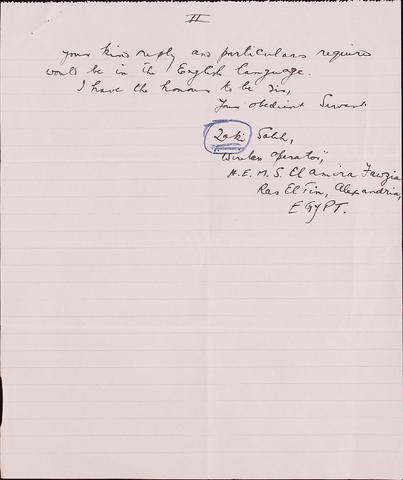 II
your kind reply and particulars required
would be in the English language.
I have the honour to be Sir,
Your obedient Servant
Zaki Salih,
Wireless Operator,
H.E.M.S. El Amira Fawzia
Ras El Tin, Alexandria,
EGYPT.